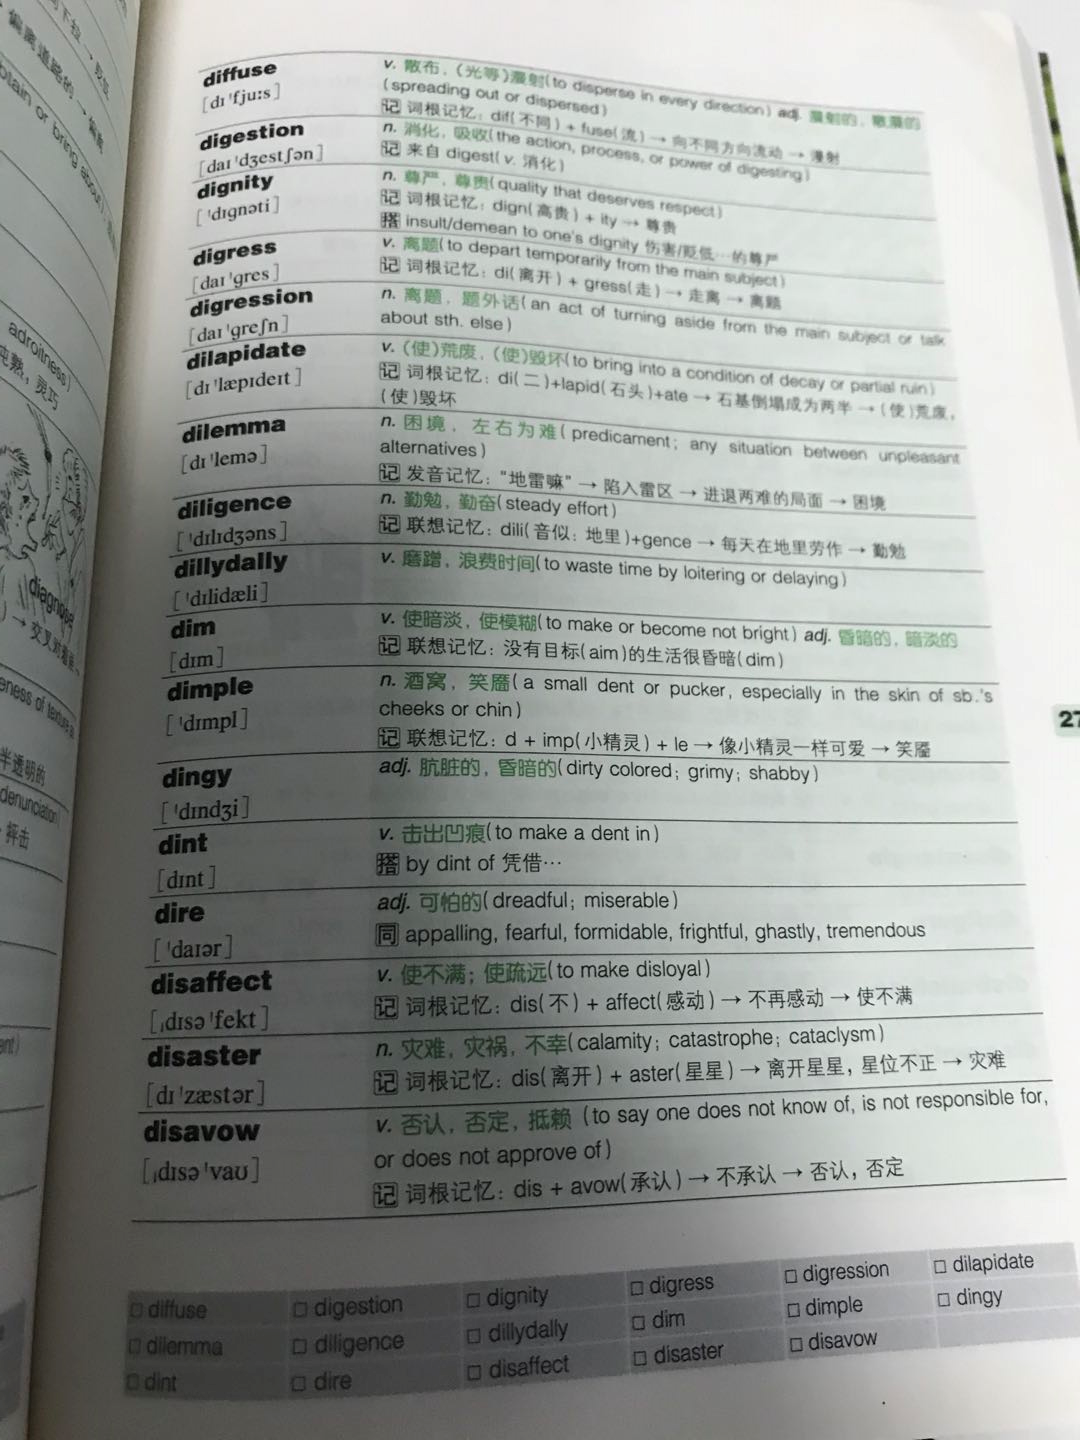 下拉 →
偏离道路的 → 偏离
plain or bring about)
adroitness)
灵巧
diagnose
→ 交叉对着
eness of texture
半透明的
denunciation)
抨击
diffuse v. 散布，(光等)漫射(to disperse in every direction) adj. 漫射的，散漫的
[dɪˈfjuːs] (spreading out or dispersed)
记 词根记忆：dif(不同) + fuse(流) → 向不同方向流动 → 漫射
digestion n. 消化，吸收(the action, process, or power of digesting)
[daɪˈdʒestʃən] 记 来自 digest(v. 消化)
dignity n. 尊严，尊贵(quality that deserves respect)
[ˈdɪgnəti] 记 词根记忆：dign(高贵) + ity → 尊贵
搭 insult/demean to one's dignity 伤害/贬低…的尊严
digress v. 离题(to depart temporarily from the main subject)
[daɪˈgres] 记 词根记忆：di(离开) + gress(走) → 走离 → 离题
digression n. 离题，题外话(an act of turning aside from the main subject or talk
[daɪˈgreʃn] about sth. else)
dilapidate v. (使)荒废，(使)毁坏(to bring into a condition of decay or partial ruin)
[dɪˈlæpɪdeɪt] 记 词根记忆：di(二)+lapid(石头)+ate → 石基倒塌成为两半 → (使)荒废，
(使)毁坏
dilemma n. 困境，左右为难(predicament; any situation between unpleasant
[dɪˈlemə] alternatives)
记 发音记忆："地雷嘛" → 陷入雷区 → 进退两难的局面 → 困境
diligence n. 勤勉，勤奋(steady effort)
[ˈdɪlɪdʒəns] 记 联想记忆：dili(音似：地里)+gence → 每天在地里劳作 → 勤勉
dillydally v. 磨蹭，浪费时间(to waste time by loitering or delaying)
[ˈdɪlidæli]
dim v. 使暗淡，使模糊(to make or become not bright) adj. 昏暗的，暗淡的
[dɪm] 记 联想记忆：没有目标(aim)的生活很昏暗(dim)
dimple n. 酒窝，笑靥(a small dent or pucker, especially in the skin of sb.'s
[ˈdɪmpl] cheeks or chin)
记 联想记忆：d + imp(小精灵) + le → 像小精灵一样可爱 → 笑靥
dingy adj. 肮脏的，昏暗的(dirty colored; grimy; shabby)
[ˈdɪndʒi]
dint v. 击出凹痕(to make a dent in)
[dɪnt] 搭 by dint of 凭借…
dire adj. 可怕的(dreadful; miserable)
[ˈdaɪər] 同 appalling, fearful, formidable, frightful, ghastly, tremendous
disaffect v. 使不满；使疏远(to make disloyal)
[ˌdɪsəˈfekt] 记 词根记忆：dis(不) + affect(感动) → 不再感动 → 使不满
disaster n. 灾难，灾祸，不幸(calamity; catastrophe; cataclysm)
[dɪˈzæstər] 记 词根记忆：dis(离开) + aster(星星) → 离开星星，星位不正 → 灾难
disavow v. 否认，否定，抵赖 (to say one does not know of, is not responsible for,
[ˌdɪsəˈvaʊ] or does not approve of)
记 词根记忆：dis + avow(承认) → 不承认 → 否认，否定
27
□ diffuse □ digestion □ dignity □ digress □ digression □ dilapidate
□ dilemma □ diligence □ dillydally □ dim □ dimple □ dingy
□ dint □ dire □ disaffect □ disaster □ disavow